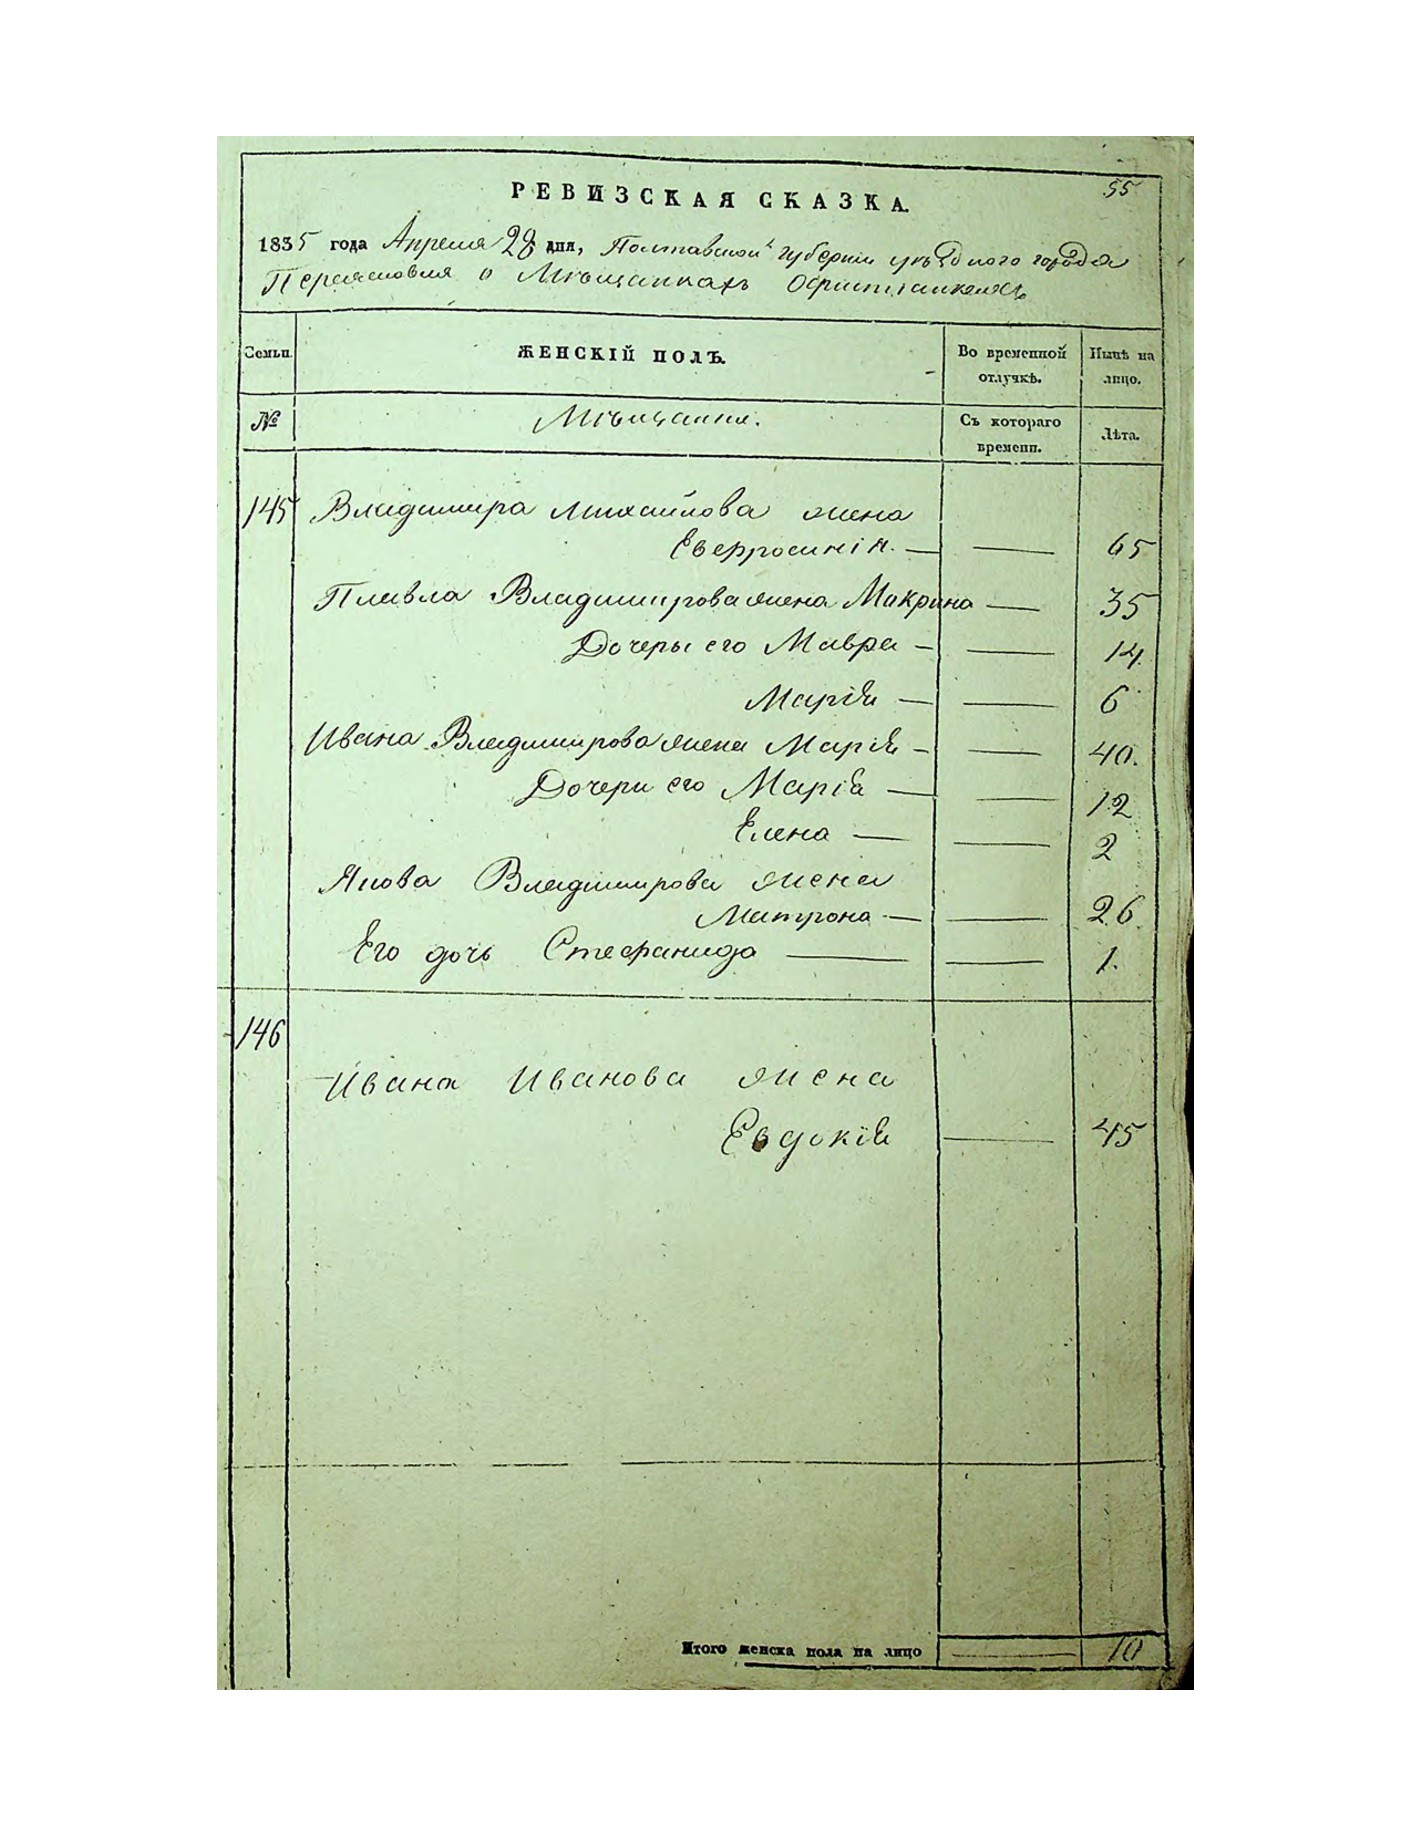 55
РЕВИЗСКАЯ СКАЗКА.
1835 года Апреля 28 дня, Полтавской губернии уѣздного города
Переяславля о Мѣщанкахъ Християнкахъ
Семьи. ЖЕНСКІЙ ПОЛЪ. Во временной отлучкѣ. Нынѣ на лицо.
№ Мѣщанки. Съ котораго времени. Лѣта.
145 Владимира Михайлова жена
Евфросинія. — — 65
Павла Владимирова жена Макрина — 35
Дочеры его Мавра — — 14.
Марія — — 6
Ивана Владимирова жена Марія — — 40.
Дочери его Марія — — 12
Елена — — 2
Якова Владимирова жена
Матрона — — 26.
Его дочь Стефанида — — 1.
146
Ивана Иванова жена
Евдокія — 45
Итого женска пола на лицо — 10